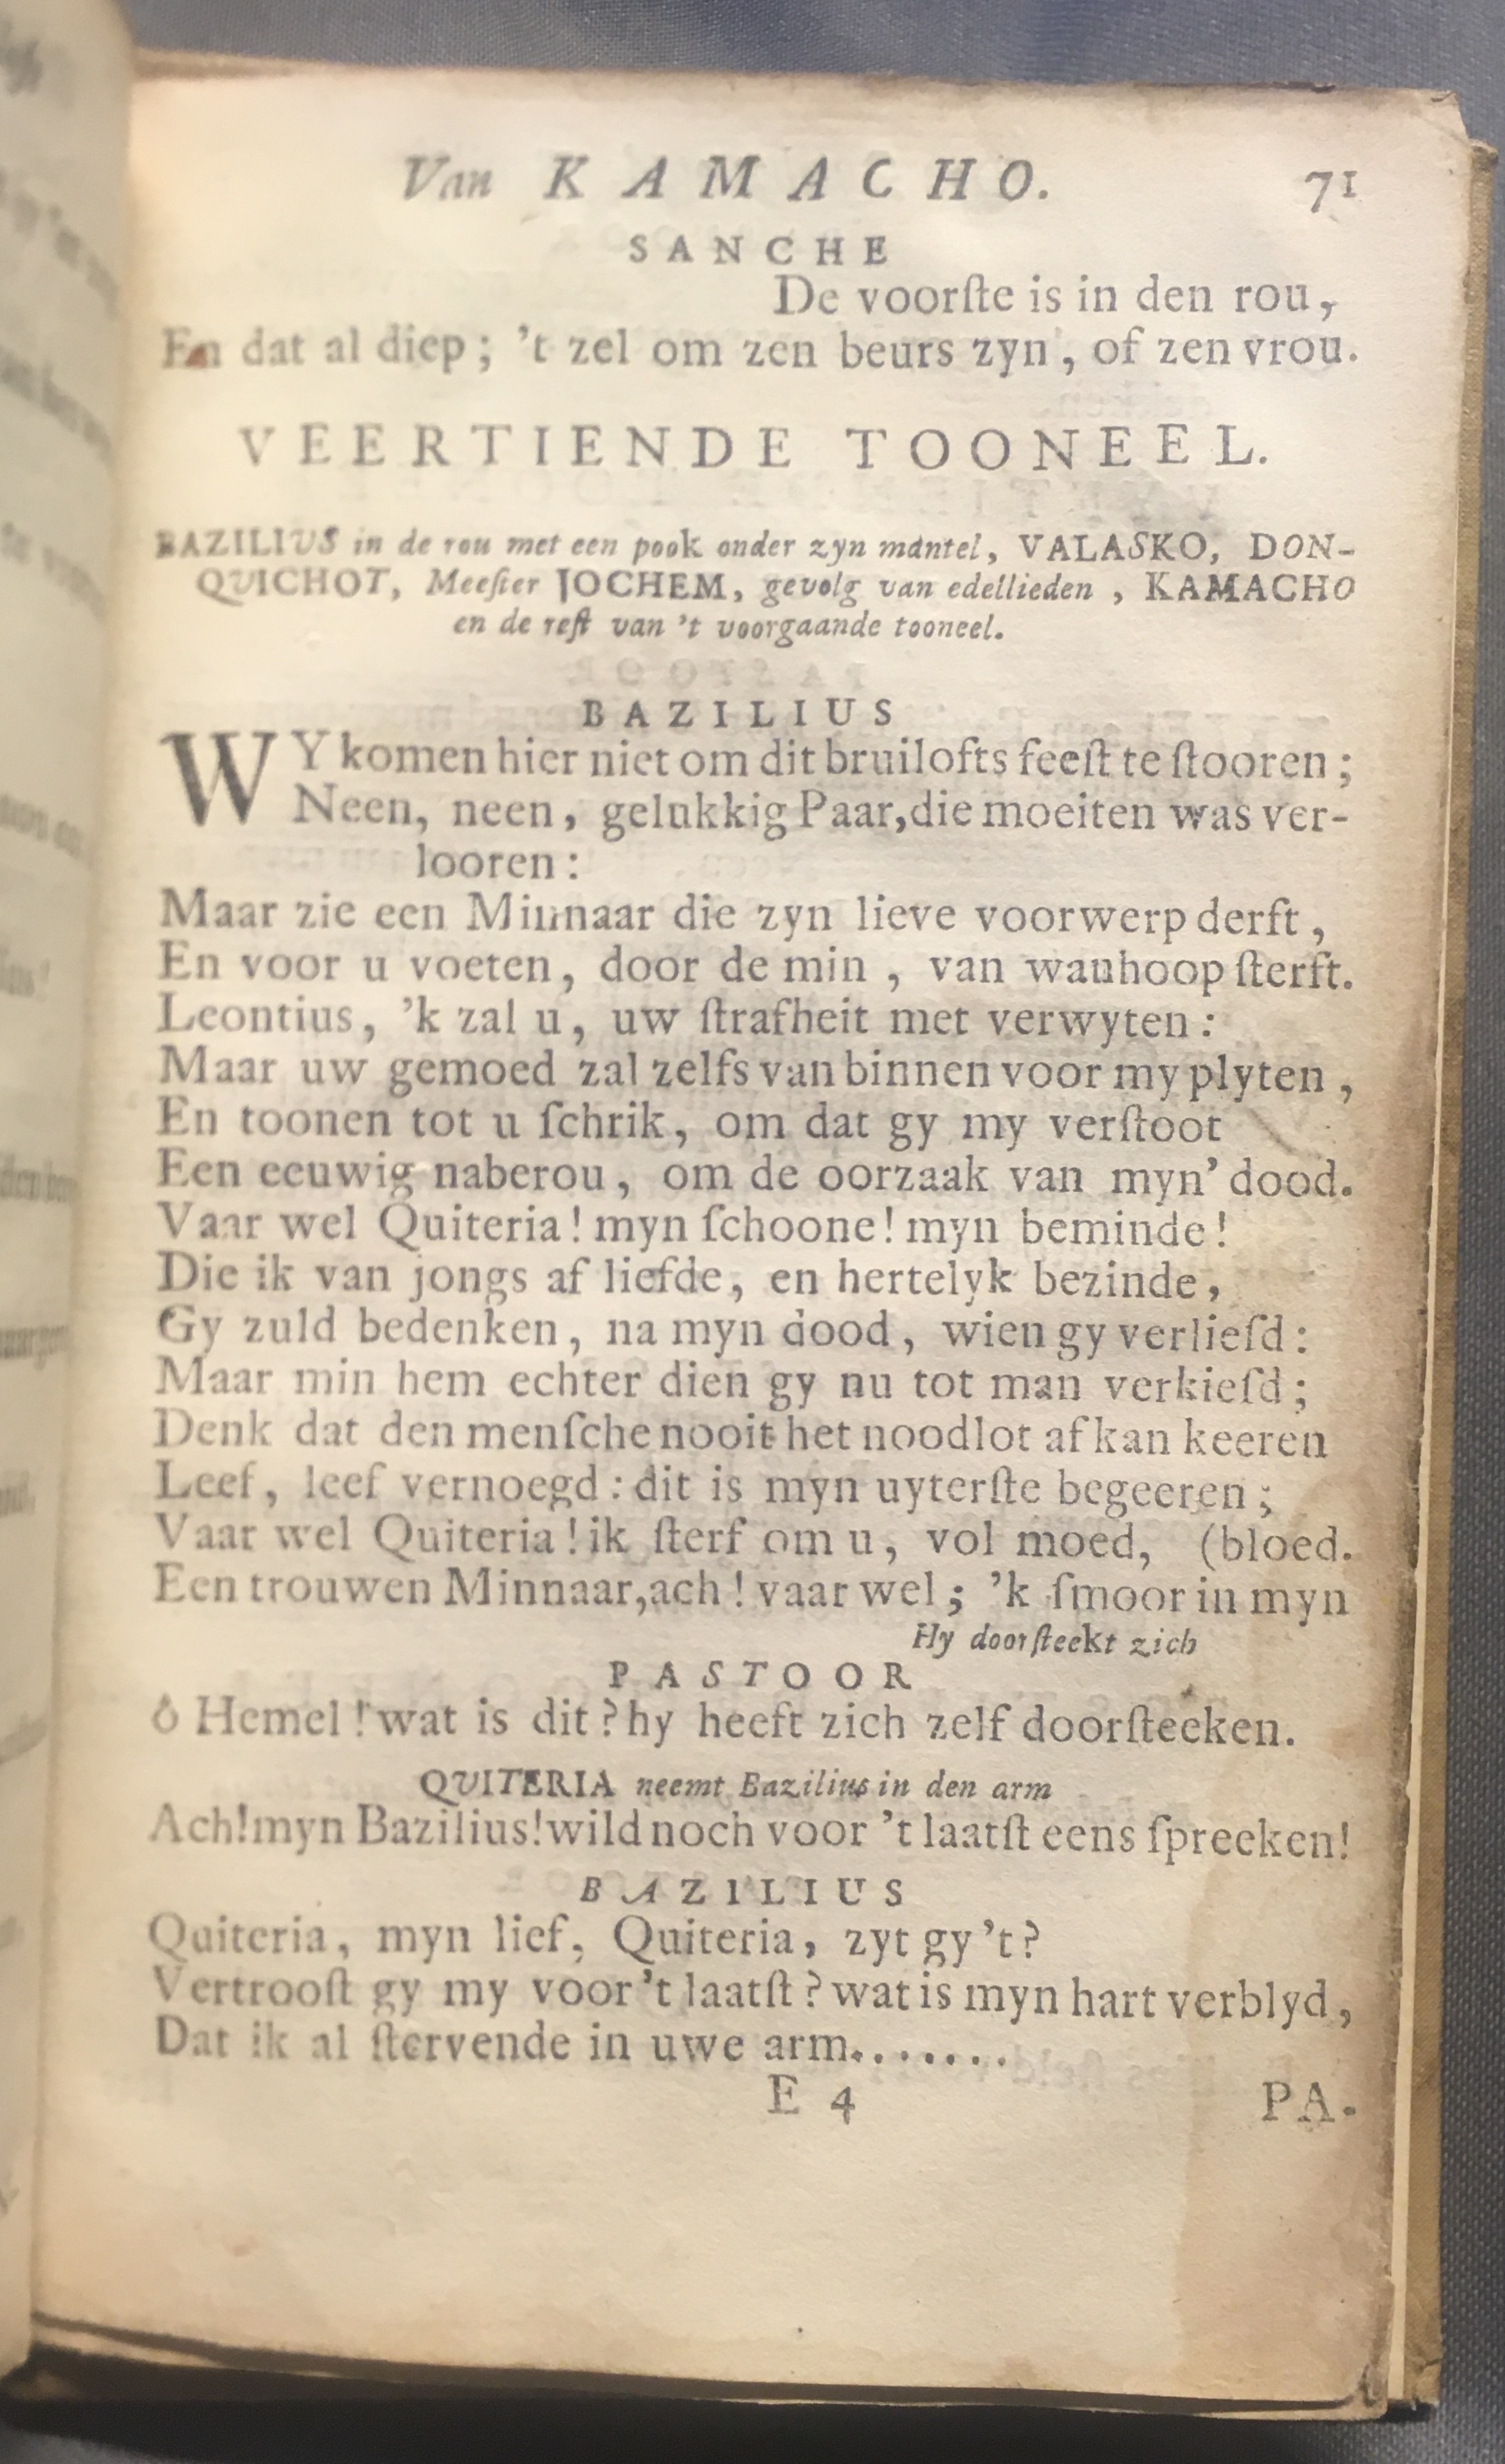 Van KAMACHO. 71
SANCHE
De voorſte is in den rou,
En dat al diep; 't zel om zen beurs zyn, of zen vrou.
VEERTIENDE TOONEEL.
BAZILIUS in de rou met een pook onder zyn mantel, VALASKO, DON-
QUICHOT, Meeſter JOCHEM, gevolg van edellieden, KAMACHO
en de reſt van 't voorgaande tooneel.
BAZILIUS
WY komen hier niet om dit bruilofts feeſt te ſtooren;
Neen, neen, gelukkig Paar, die moeiten was ver-
looren:
Maar zie een Minnaar die zyn lieve voorwerp derft,
En voor u voeten, door de min, van wanhoop ſterft.
Leontius, 'k zal u, uw ſtrafheit met verwyten:
Maar uw gemoed zal zelfs van binnen voor my plyten,
En toonen tot u ſchrik, om dat gy my verſtoot
Een eeuwig naberou, om de oorzaak van myn' dood.
Vaar wel Quiteria! myn ſchoone! myn beminde!
Die ik van jongs af liefde, en hertelyk bezinde,
Gy zuld bedenken, na myn dood, wien gy verlieſd:
Maar min hem echter dien gy nu tot man verkieſd;
Denk dat den menſche nooit het noodlot af kan keeren
Leef, leef vernoegd: dit is myn uyterſte begeeren;
Vaar wel Quiteria! ik ſterf om u, vol moed, (bloed.
Een trouwen Minnaar, ach! vaar wel; 'k ſmoor in myn
Hy doorſteekt zich
PASTOOR
ô Hemel! wat is dit? hy heeft zich zelf doorſteeken.
QUITERIA neemt Bazilius in den arm
Ach! myn Bazilius! wild noch voor 't laatſt eens ſpreeken!
BAZILIUS
Quiteria, myn lief, Quiteria, zyt gy 't?
Vertrooſt gy my voor 't laatſt? wat is myn hart verblyd,
Dat ik al ſtervende in uwe arm........
E 4 PA-